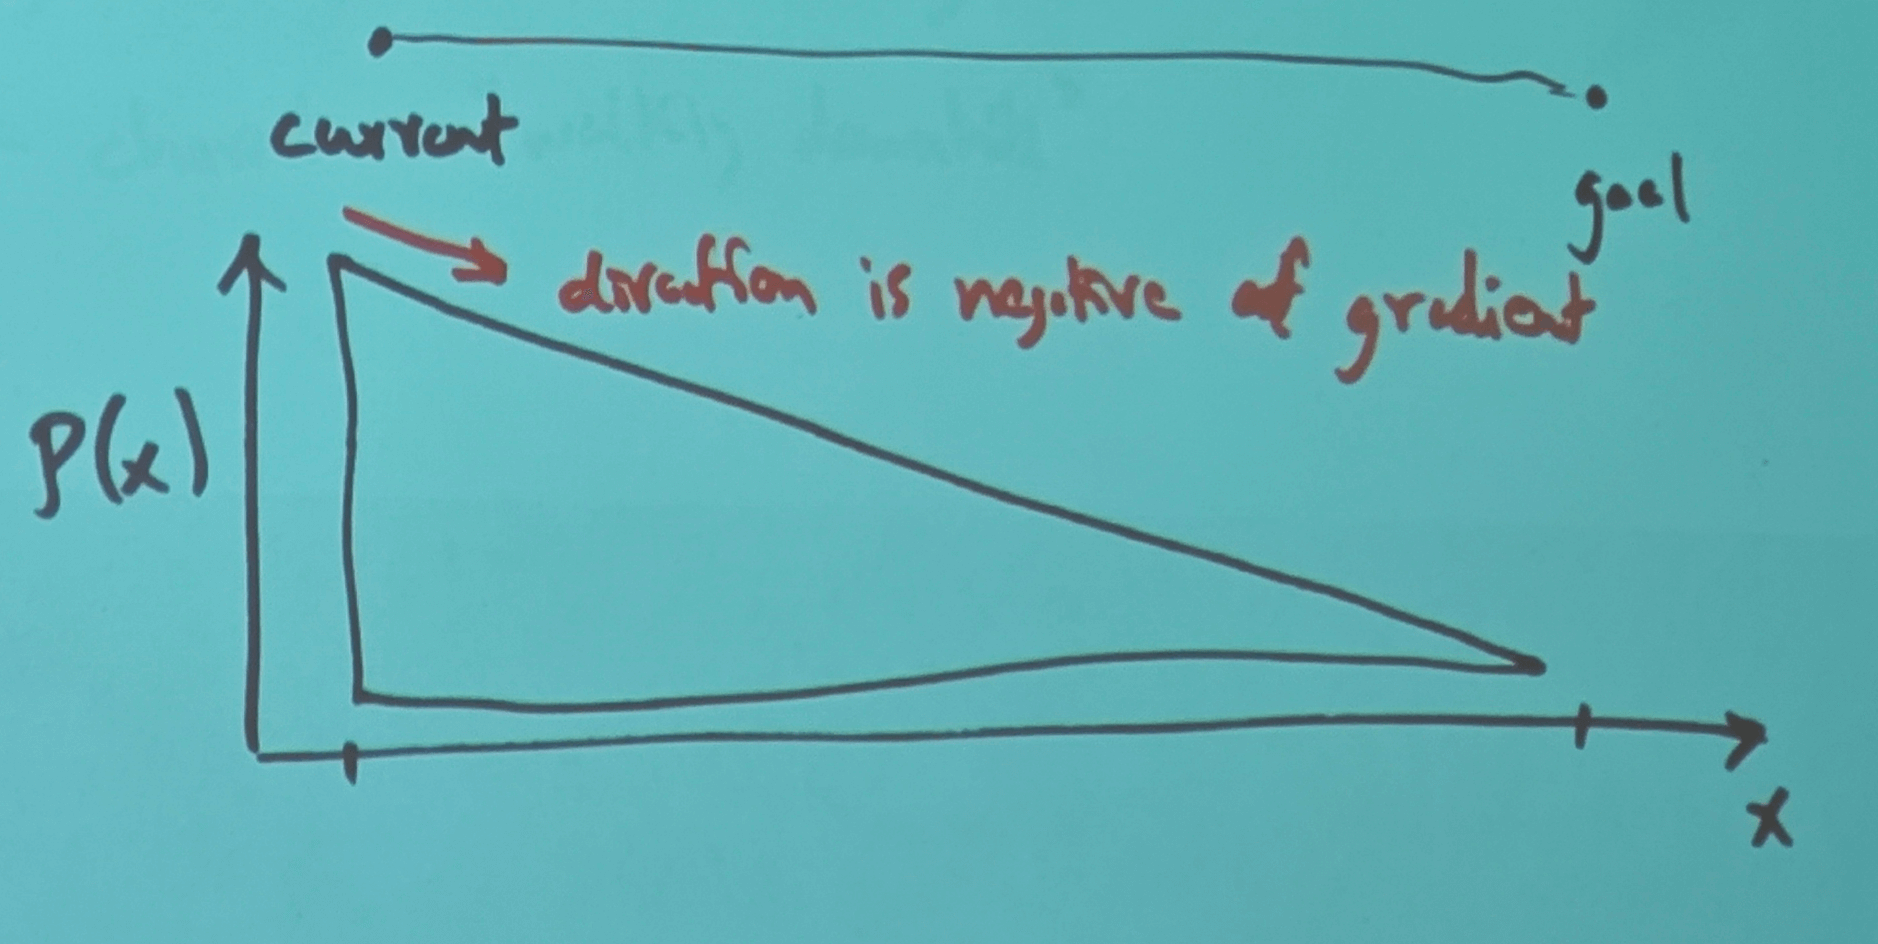 current
goal
direction is negative of gradient
P(x)
x